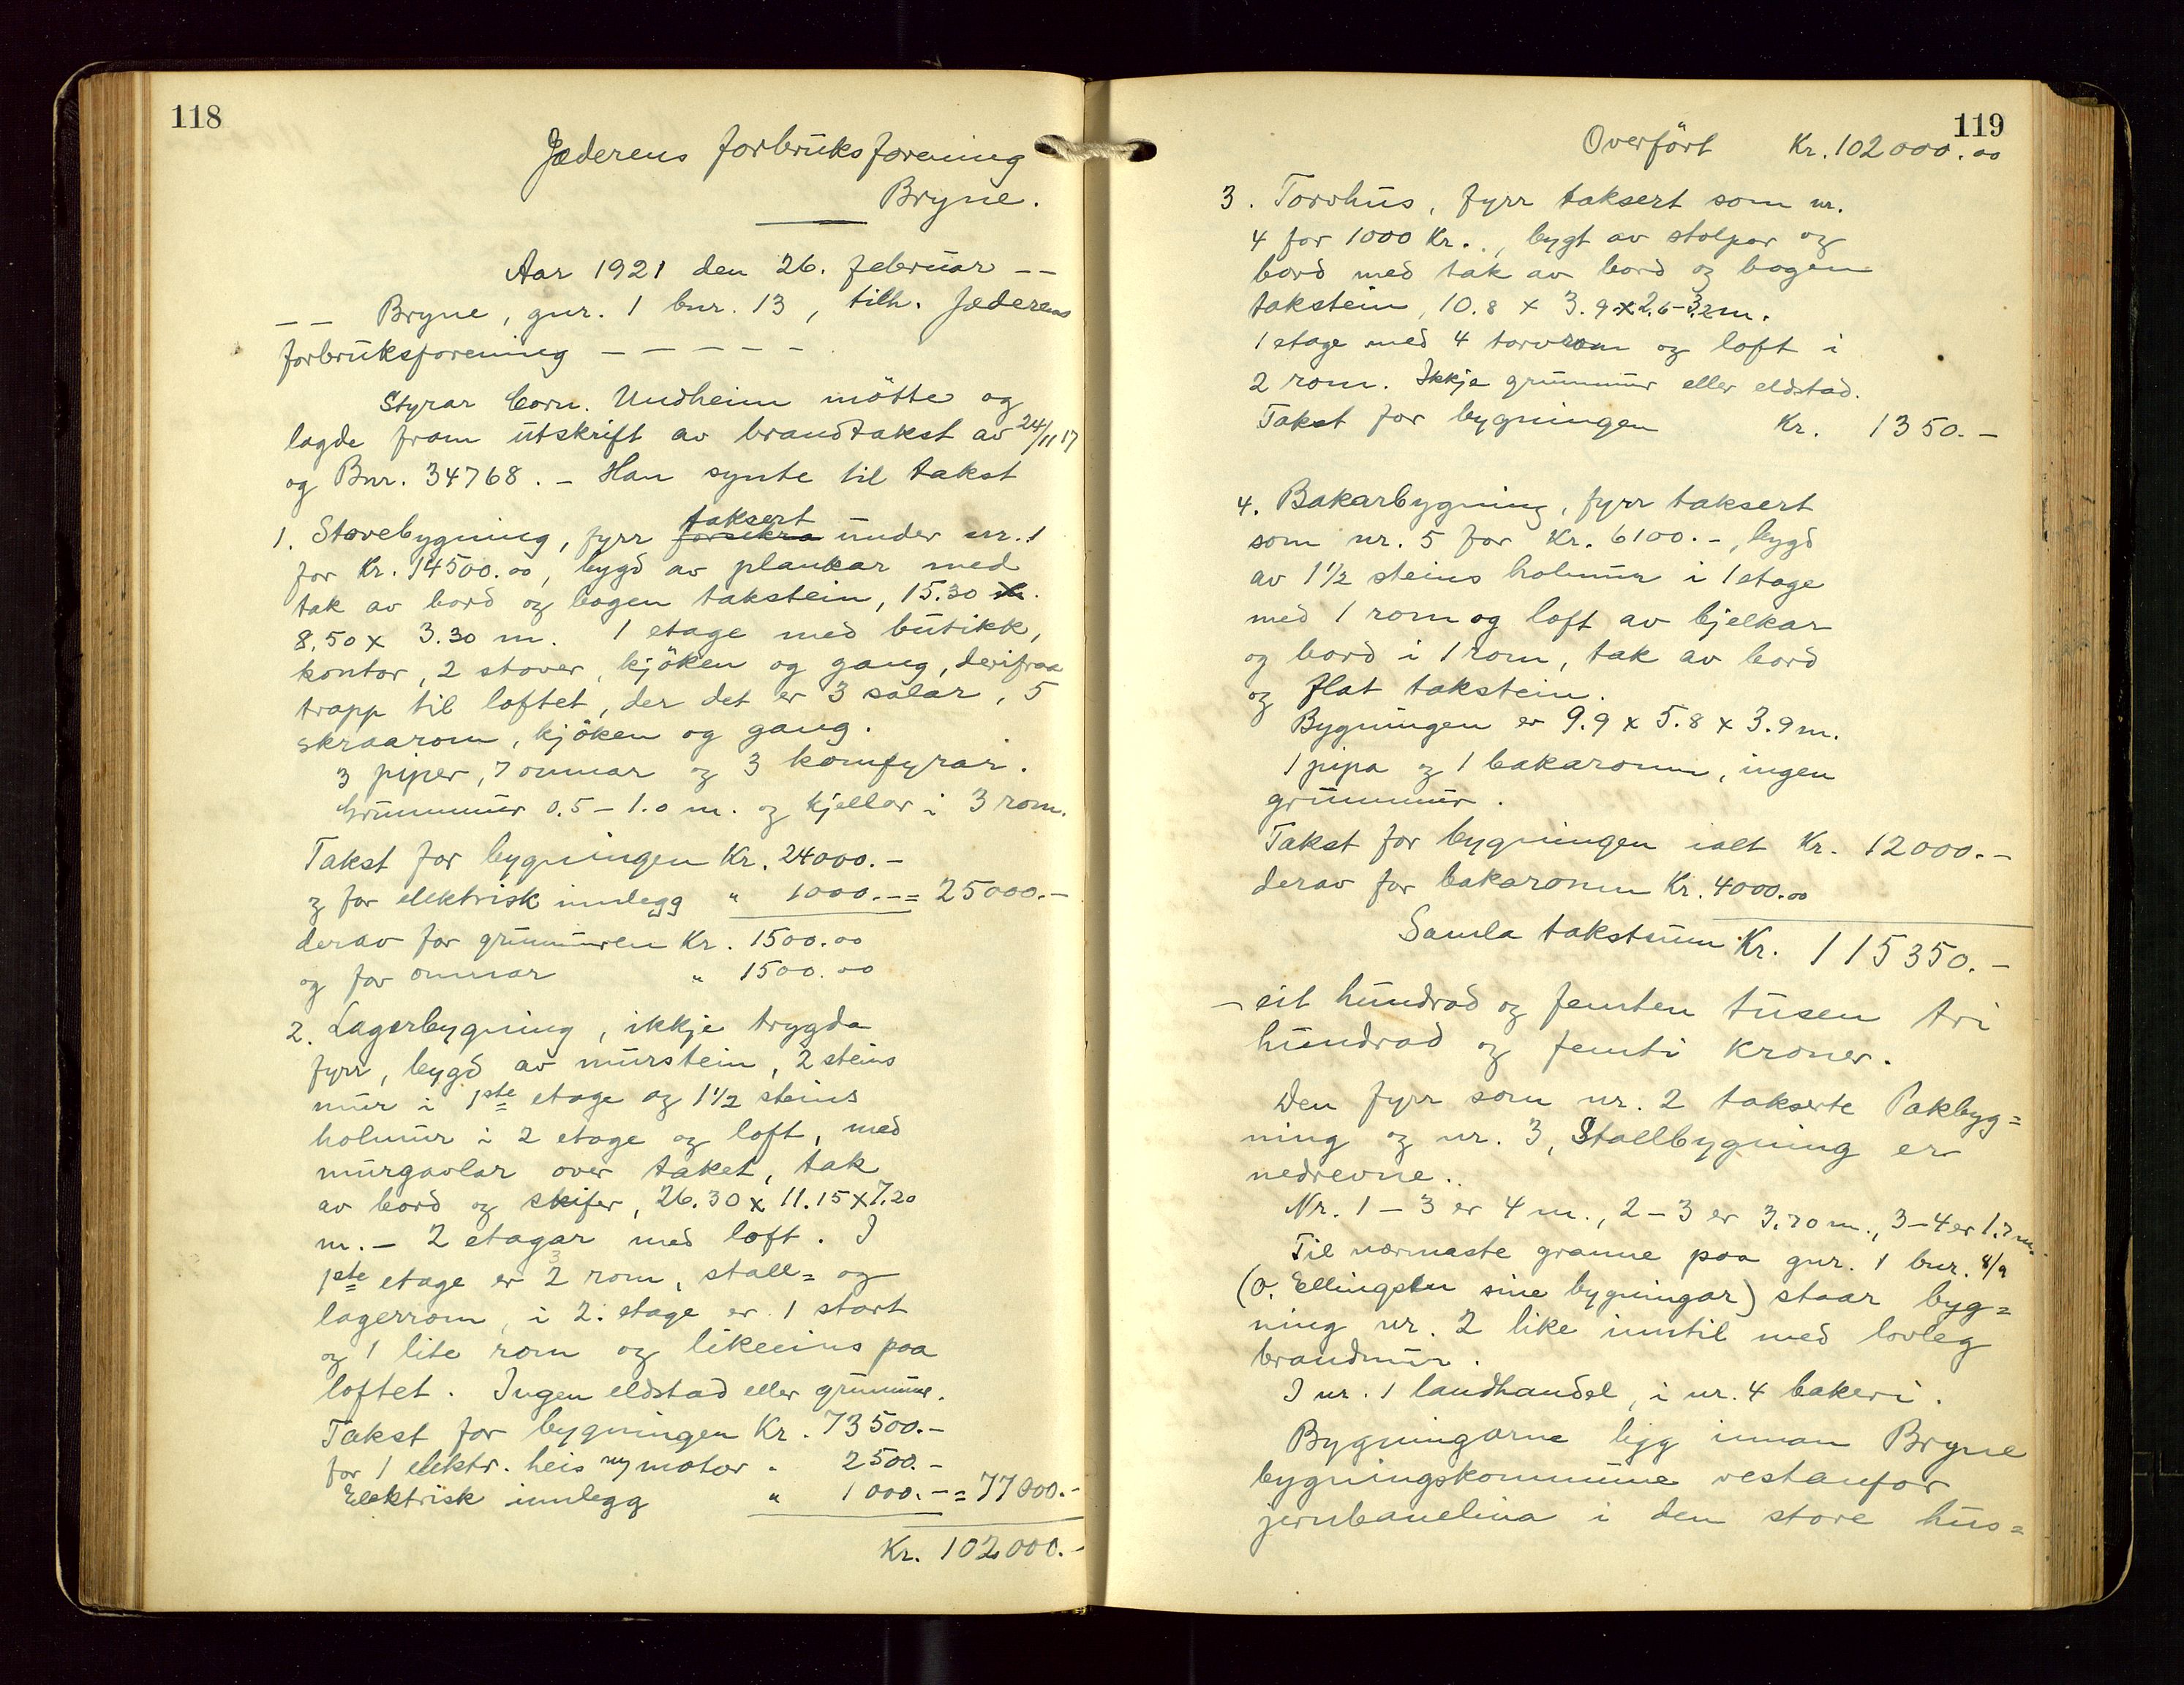 118
Jæderens forbruksforening
Bryne.
Aar 1921 den 26. februar --
-- Bryne, gnr. 1 bnr. 13, tilh. Jæderens
forbruksforening - - - - -
Styrar Corn. Undheim mötte og
lagde fram utskrift av brandtakst av 24/11 17
og Bnr. 34768. - Han synte til takst
1. Stovebygning, fyrr forsikra taksert under nr. 1
for Kr. 14500.00, bygd av plankar med
tak av bord og bogen takstein, 15.30 x
8.50 x 3.30 m. 1 etage med butikk,
kontor, 2 stover, kjöken og gang, derifraa
trapp til loftet, der det er 3 salar, 5
skraarom, kjöken og gang.
3 piper, 7 omnar og 3 komfyrar.
Grunnmur 0.5 - 1.0 m. og kjellar i 3 rom.
Takst for bygningen Kr. 24000.-
og for elektrisk innlegg " 1000.- = 25000.-
derav for grunnmuren Kr. 1500.00
og for omnar " 1500.00
2. Lagerbygning, ikkje trygda
fyrr, bygd av murstein, 2 steins
mur i 1ste etage og 1 1/2 steins
holmur i 2 etage og loft, med
murgavlar over taket, tak
av bord og skifer, 26.30 x 11.15 x 7.20
m. - 2 etagar med loft. I
1ste etage er 2 3 rom, stall= og
lagerrom, i 2. etage er 1 stort
og 1 lite rom og likeeins paa
loftet. Ingen eldstad eller grunnmur.
Takst for bygningen Kr. 73500.-
for 1 elektr. heis m/ motor " 2500.-
Elektrisk innlegg " 1000.- = 77000.-
Kr. 102000.-
119
Overfört Kr. 102000.00
3. Torvhus, fyrr taksert som nr.
4 for 1000 Kr., bygt av stolpar og
bord med tak av bord og bogen
takstein, 10.8 x 3.9 x 2.6-3.2 m.
1 etage med 4 torvrom og loft i
2 rom. Ikkje grunnmur eller eldstad.
Takst for bygningen Kr. 1350.-
4. Bakarbygning, fyrr taksert
som nr. 5 for Kr. 6100.-, bygd
av 1 1/2 steins holmur i 1 etage
med 1 rom og loft av bjelkar
og bord i 1 rom, tak av bord
og flat takstein.
Bygningen er 9.9 x 5.8 x 3.9 m.
1 pipa og 1 bakaromn, ingen
grunnmur.
Takst for bygningen ialt Kr. 12000.-
derav for bakaromn Kr. 4000.00
Samla takstsum Kr. 115350.-
- eit hundrad og femten tusen tri
hundrad og femti kroner.
Den fyrr som nr. 2 takserte Pakbyg=
ning og nr. 3, Stallbygning er
nedrevne..
Nr. 1 - 3 er 4 m., 2 - 3 er 3.70 m., 3 - 4 er 1.7 m.
Til nærmaste granne paa gnr. 1 bnr. 8/9
(O. Ellingsen sine bygningar) staar byg=
ning nr. 2 like inntil med lovleg
brandmur.
I nr. 1 landhandel, i nr. 4 bakeri.
Bygningarne ligg innan Bryne
bygningskommune vestanfor
jernbanelina i den store hus=